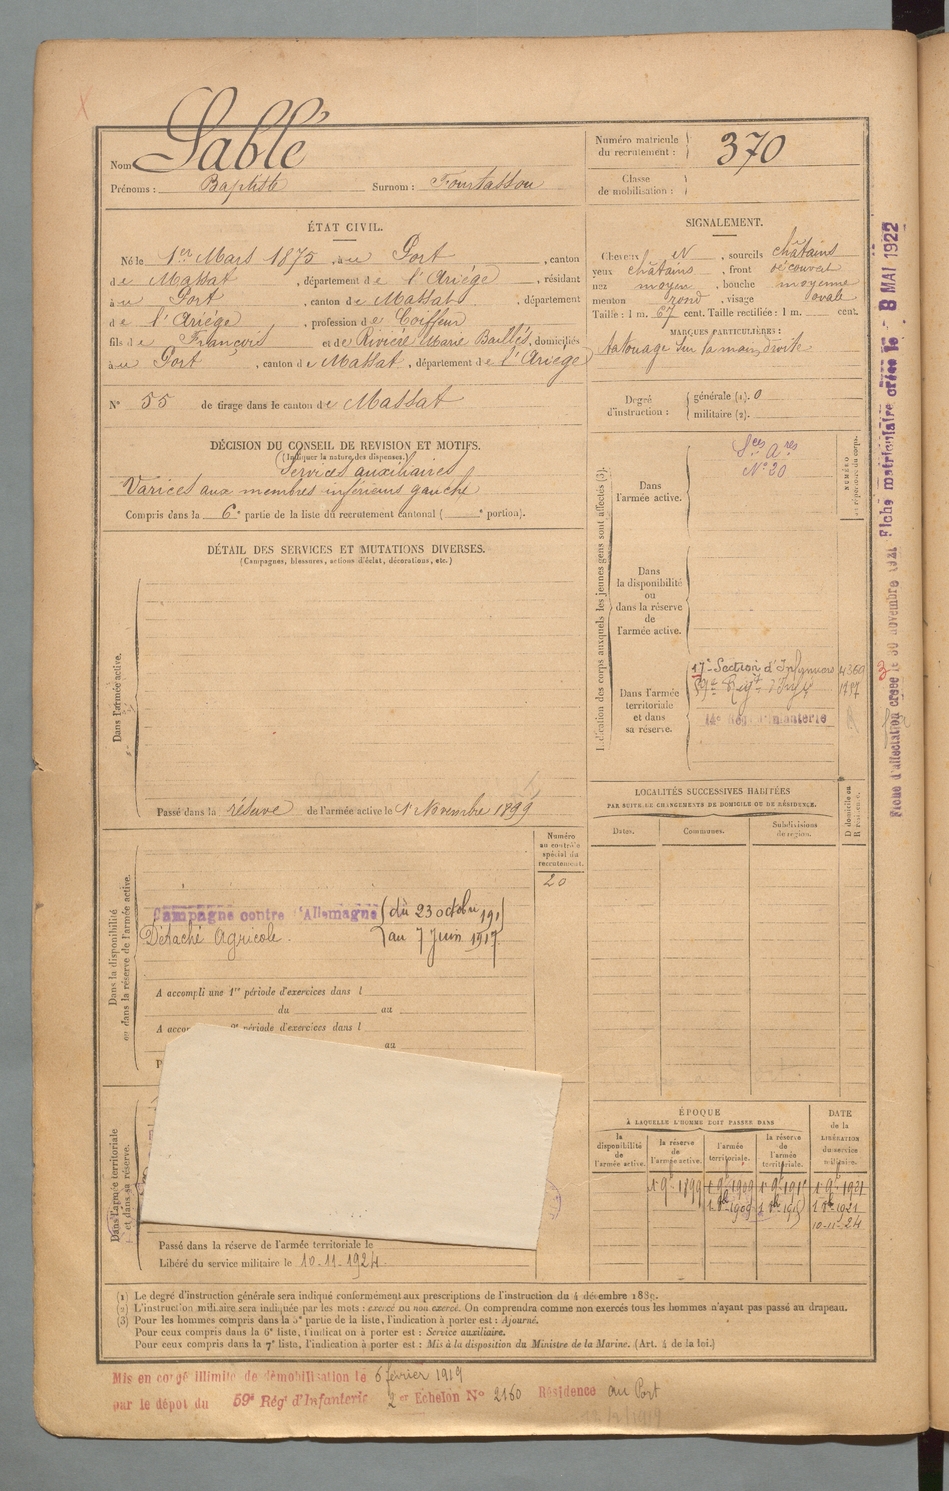 Nom Sablé
Prénoms : Baptiste Surnom : Fourtassou
Numéro matricule du recrutement : 370
Classe de mobilisation :
ÉTAT CIVIL.
Né le 1er Mars 1875, à u Port, canton
de Massat, département de l'Ariége, résidant
à u Port, canton de Massat, département
de l'Ariége, profession de Coiffeur
fils de François et de Rivière Marie Baillés, domiciliés
à u Port, canton de Massat, département de l'Ariége
N° 55 de tirage dans le canton de Massat
SIGNALEMENT.
Cheveux N, sourcils châtains
yeux châtains, front découvert
nez moyen, bouche moyenne
menton rond, visage ovale
Taille : 1 m. 67 cent. Taille rectifiée : 1 m. cent.
MARQUES PARTICULIÈRES :
tatouage sur la main droite
Degré d'instruction : générale (1). 0
militaire (2).
DÉCISION DU CONSEIL DE REVISION ET MOTIFS.
(Indiquer la nature des dispenses.)
Services auxiliaires
Varices aux membres inférieurs gauche
Compris dans la 6e partie de la liste du recrutement cantonal ( e portion).
DÉTAIL DES SERVICES ET MUTATIONS DIVERSES.
(Campagnes, blessures, actions d'éclat, décorations, etc.)
Dans l'armée active.
Passé dans la réserve de l'armée active le 1r Novembre 1899
Indication des corps auxquels les jeunes gens sont affectés (3).
NUMÉRO au répertoire du corps.
Dans l'armée active.
Sces Ares
N° 20
Dans la disponibilité ou dans la réserve de l'armée active.
Dans l'armée territoriale et dans sa réserve.
17e Section d'Infirmiers 4369
Regt d'Inf
14e Rég. d'Infanterie
LOCALITÉS SUCCESSIVES HABITÉES
PAR SUITE DE CHANGEMENTS DE DOMICILE OU DE RÉSIDENCE.
Dates. Communes. Subdivisions de région. D domicile ou R résidence.
Dans la disponibilité ou dans la réserve de l'armée active.
Numéro au contrôle spécial du recrutement.
20
Campagne contre l'Allemagne (du 23 octobre 191
Détaché Agricole. au 7 Juin 1917
A accompli une 1re période d'exercices dans l
du au
A accom période d'exercices dans l
au
Dans l'armée territoriale et dans sa réserve.
Passé dans la réserve de l'armée territoriale le
Libéré du service militaire le 10-11-1924.
ÉPOQUE
À LAQUELLE L'HOMME DOIT PASSER DANS
la disponibilité de l'armée active.
la réserve de l'armée active.
l'armée territoriale.
la réserve de l'armée territoriale.
DATE de la LIBÉRATION du service militaire.
1r 9e 1899 1r 9e 1909 1r 9e 191 1r 9e 1921
1 8b 1909 1 8b 1915 1 8b 1921
10-11-24
(1) Le degré d'instruction générale sera indiqué conformément aux prescriptions de l'instruction du 4 décembre 1889.
(2) L'instruction militaire sera indiquée par les mots : exercé ou non exercé. On comprendra comme non exercés tous les hommes n'ayant pas passé au drapeau.
(3) Pour les hommes compris dans la 5e partie de la liste, l'indication à porter est : Ajourné.
Pour ceux compris dans la 6e liste, l'indication à porter est : Service auxiliaire.
Pour ceux compris dans la 7e liste, l'indication à porter est : Mis à la disposition du Ministre de la Marine. (Art. 4 de la loi.)
Mis en congé illimité de démobilisation le 6 février 1919
par le dépot du 59e Rég't d'Infanterie 2 er Echelon N° 2160 Résidence au Port
Fiche d'affectation créée le 30 novembre 1921 Fiche matriculaire créée le 8 MAI 1922